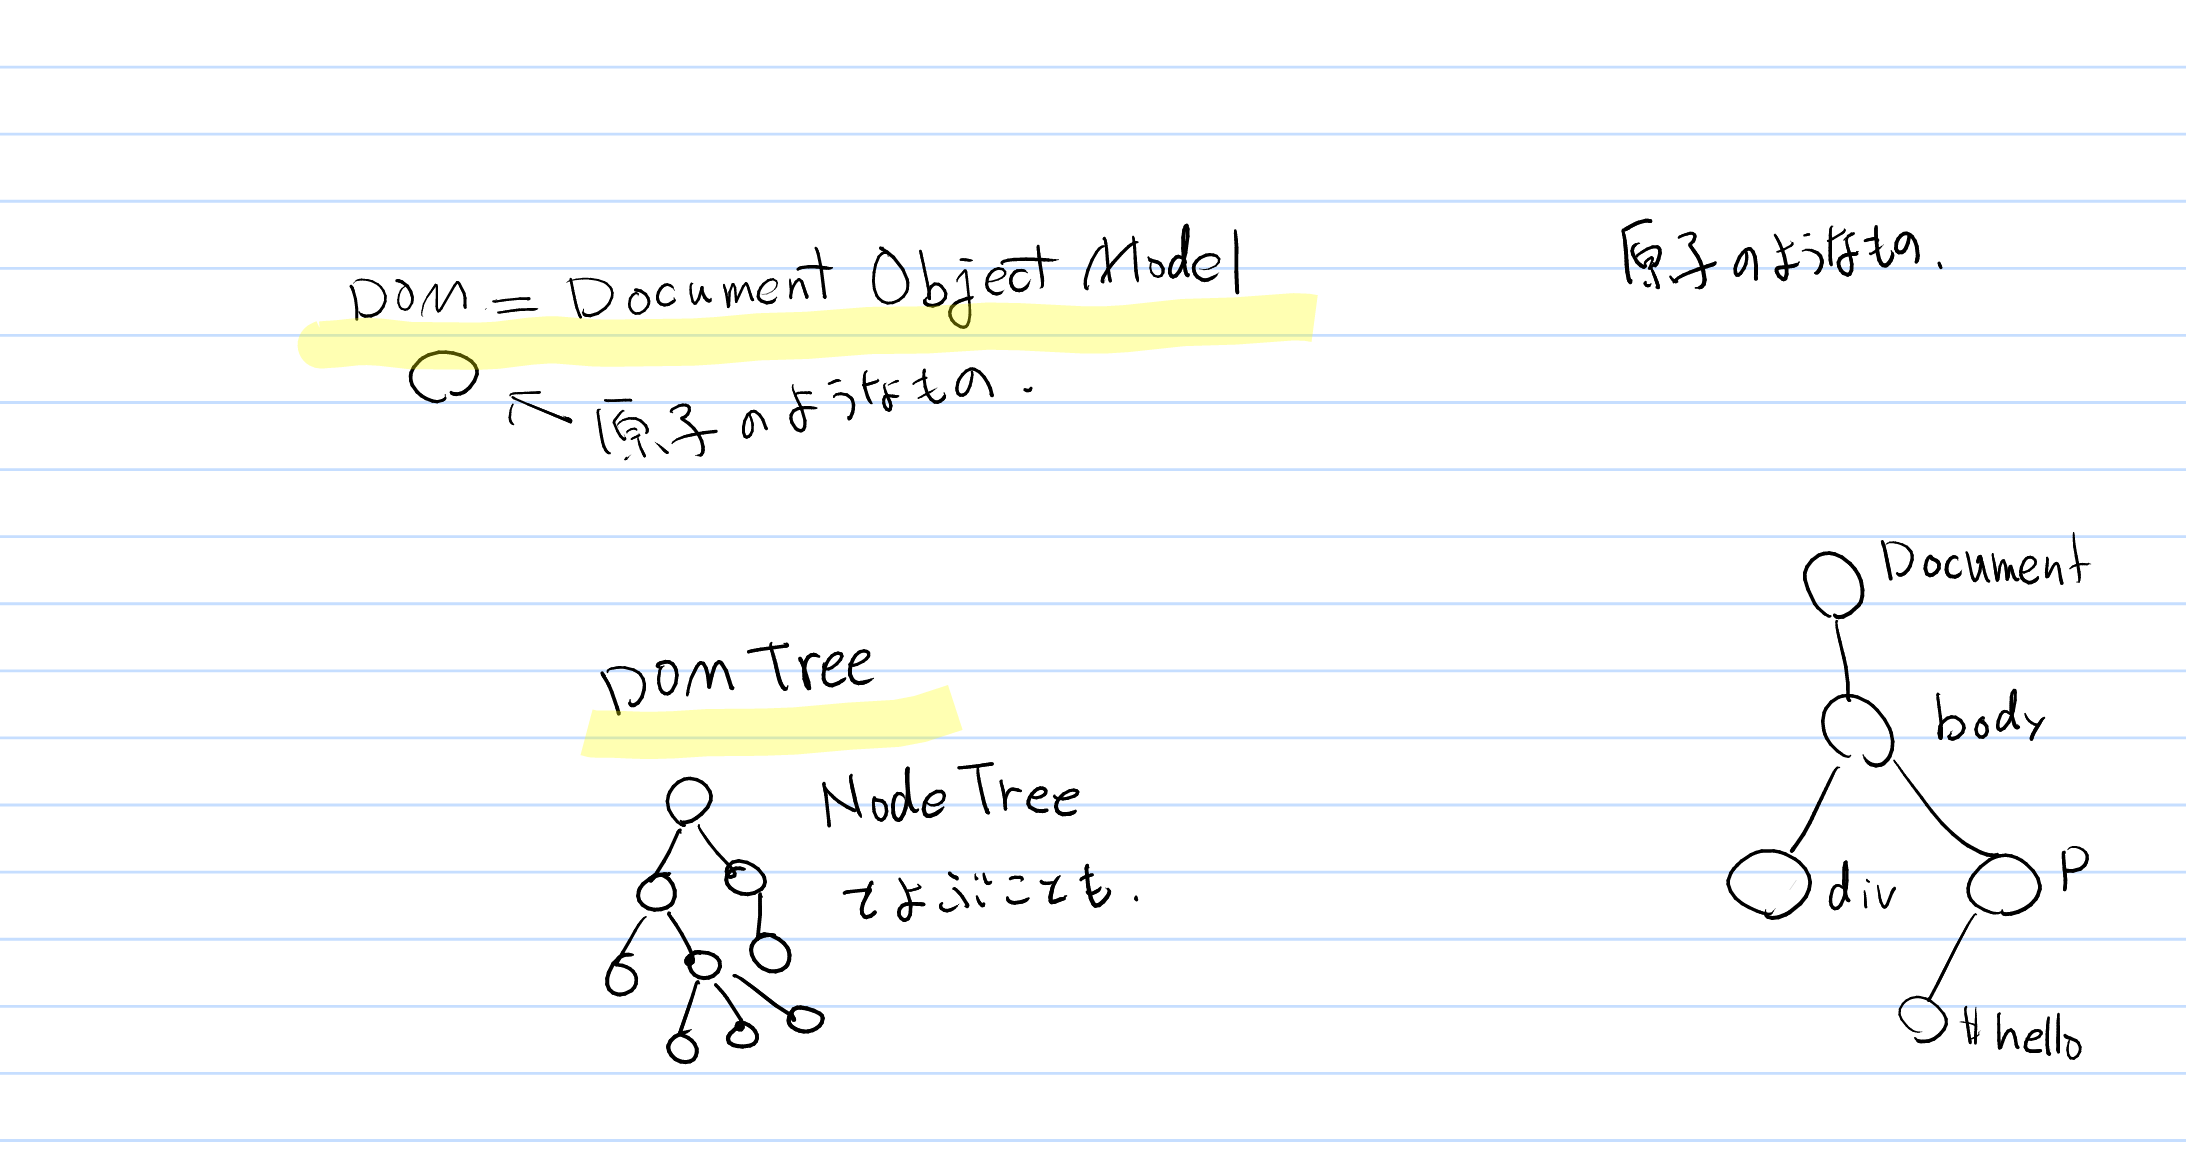 DOM = Document Object Model
原子のようなもの.
原子のようなもの.
DOM Tree
Node Tree
てよぶことも.
Document
body
div
P
#hello